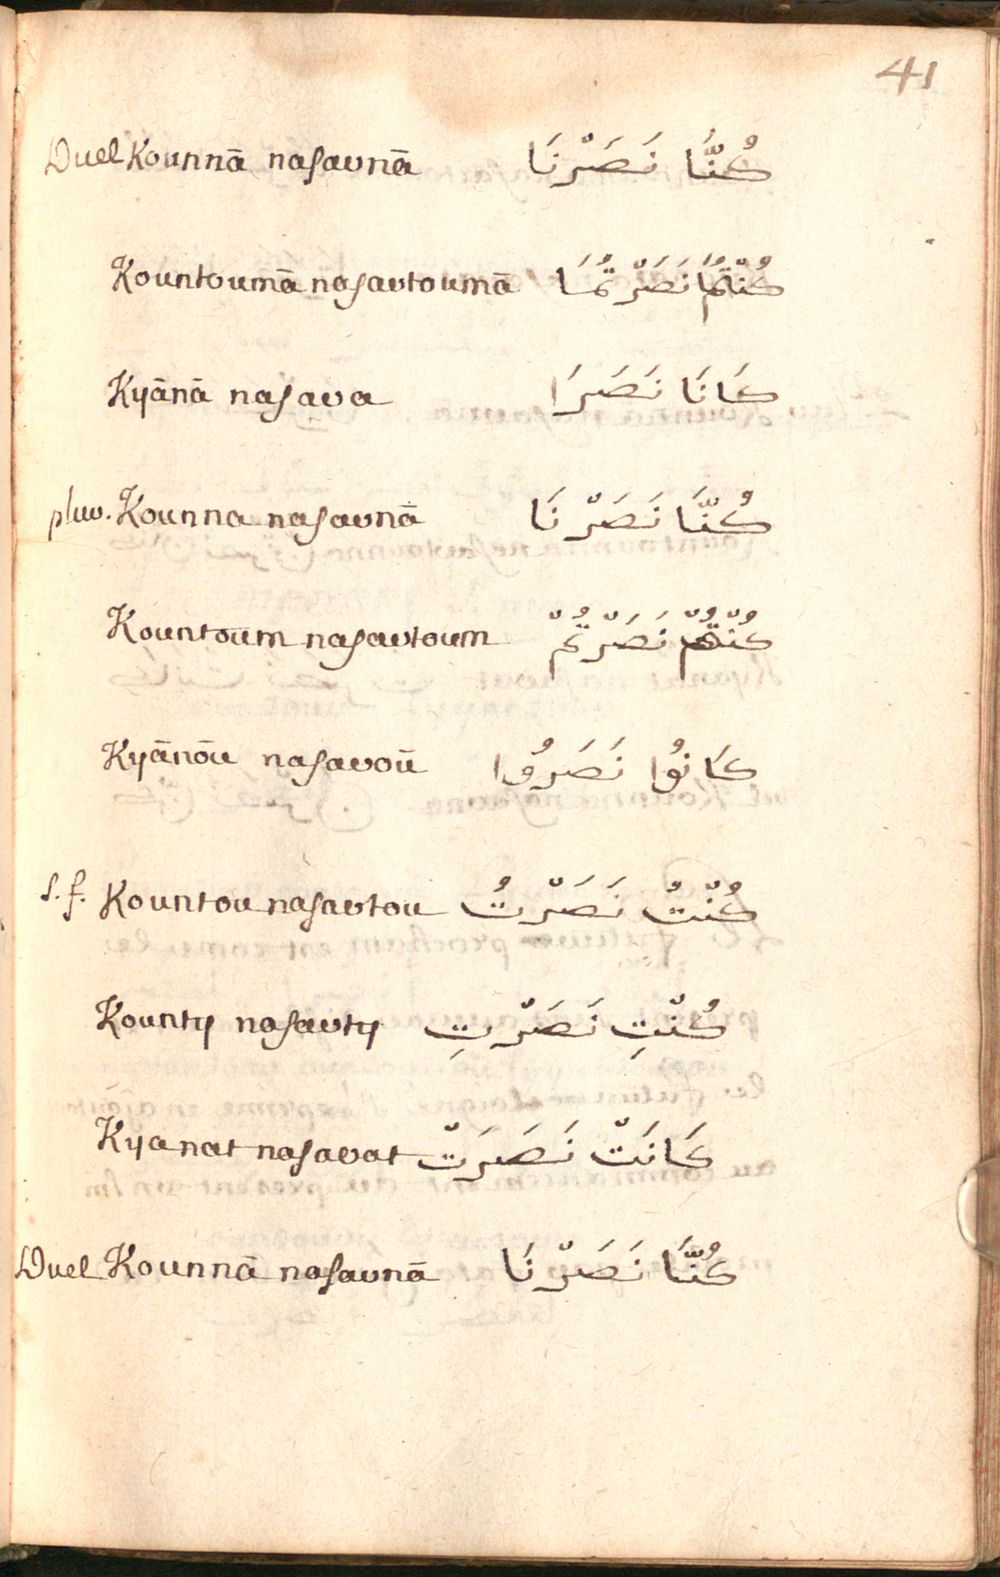 41
Duel Kounnā nasarnā كُنَّا نَصَرْنَا
Kountoumā nasartoumā كُنْتُمَا نَصَرْتُمَا
Kyānā nasara كَانَا نَصَرَا
plur. Kounna nasarnā كُنَّا نَصَرْنَا
Kountoūm nasartoum كُنْتُمْ نَصَرْتُمْ
Kyānoū nasaroū كَانُوا نَصَرُوا
s. f. Kountou nasartou كُنْتُ نَصَرْتُ
Kounty nasarty كُنْتِ نَصَرْتِ
Kyanat nasarat كَانَتْ نَصَرَتْ
Duel Kounnā nasarnā كُنَّا نَصَرْنَا